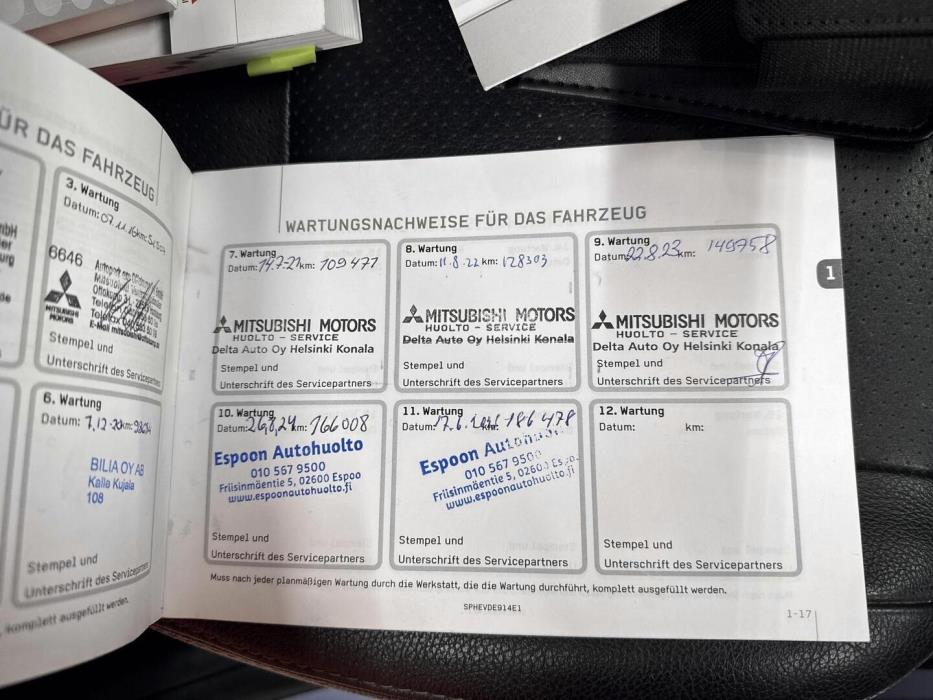 ÜR DAS FAHRZEUG
3. Wartung
Datum: 07.11.16 km:
6646
MITSUBISHI
MOTORS
Stempel und
Unterschrift des Servicepartners
6. Wartung
Datum: 7,12-20 km: 98634
BILIA OY AB
Kalle Kujala
108
Stempel und
Unterschrift des Servicepartners
komplett ausgefüllt werden.
WARTUNGSNACHWEISE FÜR DAS FAHRZEUG
7. Wartung
Datum: 14.7-21 km: 109 471
MITSUBISHI MOTORS
HUOLTO - SERVICE
Delta Auto Oy Helsinki Konala
Stempel und
Unterschrift des Servicepartners
8. Wartung
Datum: 11.8.22 km: 128303
MITSUBISHI MOTORS
HUOLTO - SERVICE
Delta Auto Oy Helsinki Konala
Stempel und
Unterschrift des Servicepartners
9. Wartung
Datum: 22.8.23 km: 149758
MITSUBISHI MOTORS
HUOLTO - SERVICE
Delta Auto Oy Helsinki Konala
Stempel und
Unterschrift des Servicepartners
1
10. Wartung
Datum: 26,8,24 km: 166008
Espoon Autohuolto
010 567 9500
Friisinmäentie 5, 02600 Espoo
www.espoonautohuolto.fi
Stempel und
Unterschrift des Servicepartners
11. Wartung
Datum: 17.6. km: 186 478
Espoon Autohuolto
010 567 9500
Friisinmäentie 5, 02600 Espoo
www.espoonautohuolto.fi
Stempel und
Unterschrift des Servicepartners
12. Wartung
Datum: km:
Stempel und
Unterschrift des Servicepartners
Muss nach jeder planmäßigen Wartung durch die Werkstatt, die die Wartung durchführt, komplett ausgefüllt werden.
SPHEVDE914E1
1-17